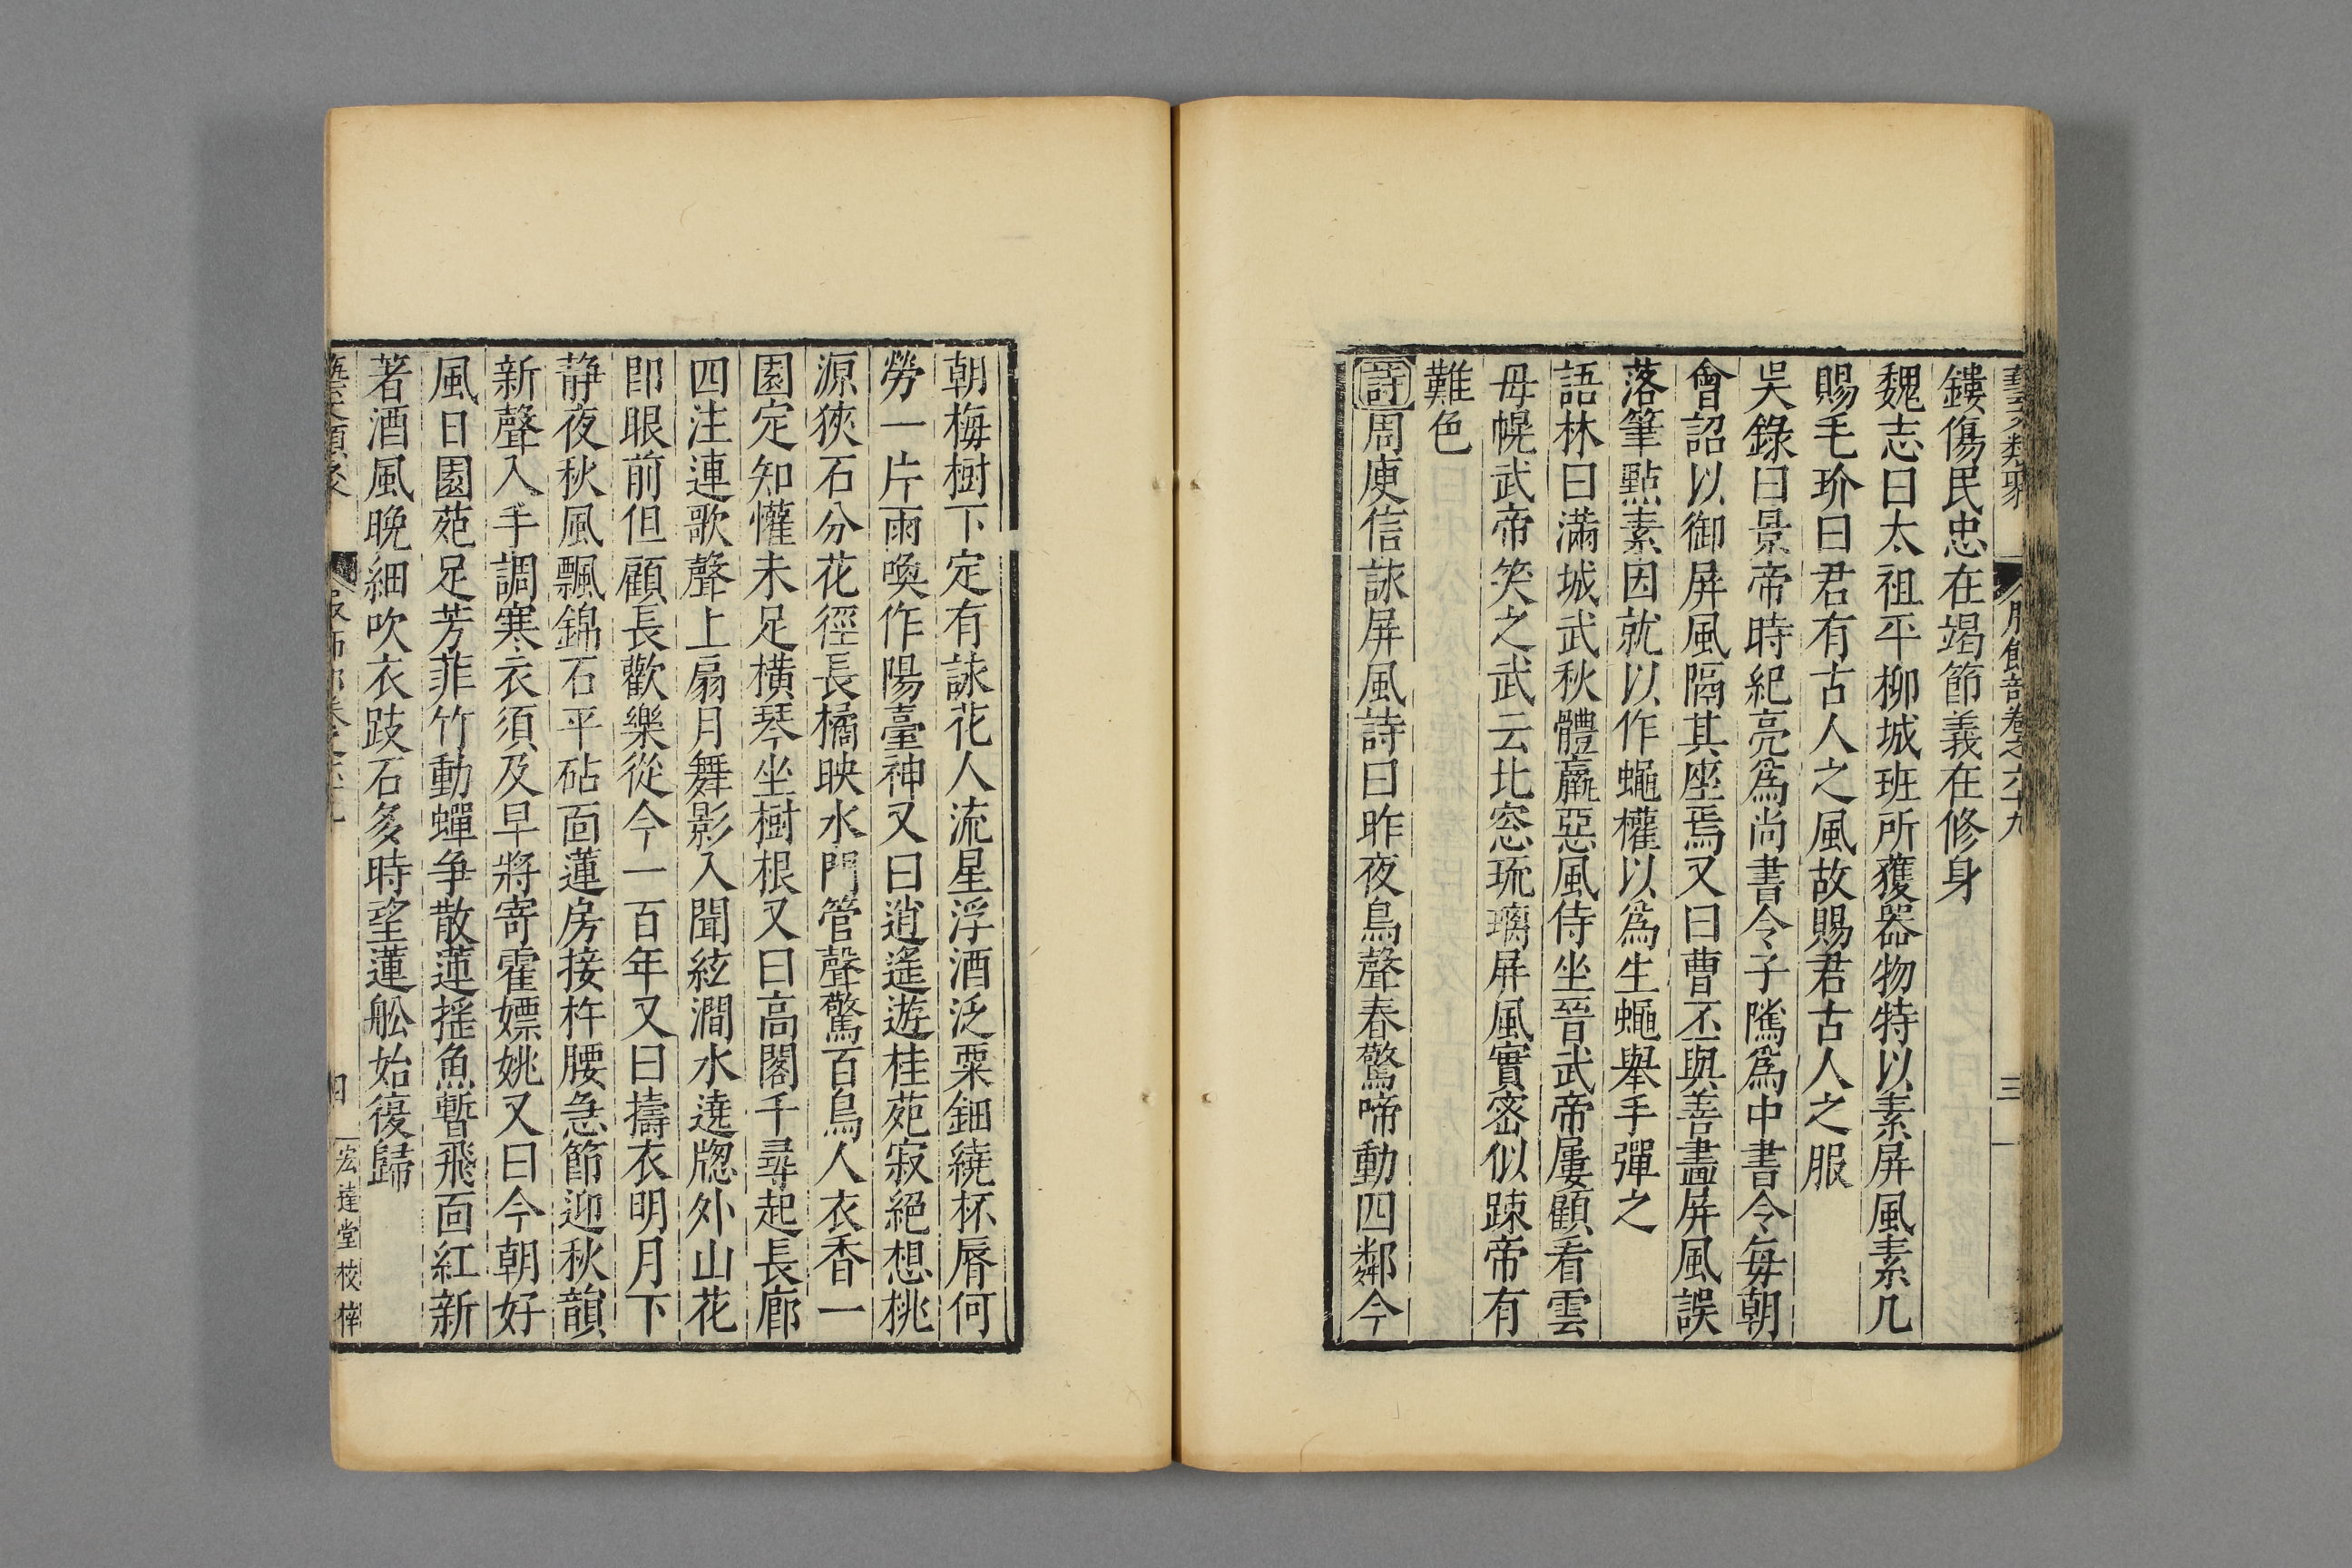 藝文類聚 服飾部卷之六十九 三
鏤傷民忠在竭節義在修身
魏志曰太祖平柳城班所獲器物特以素屏風素几
賜毛玠曰君有古人之風故賜君古人之服
吳錄曰景帝時紀亮爲尚書令子隲爲中書令每朝
會詔以御屏風隔其座焉又曰曹丕與善畫屏風誤
落筆點素因就以作蠅權以爲生蠅舉手彈之
語林曰滿城武秋體羸惡風侍坐晉武帝屢顧看雲
母幌武帝笑之武云北窓琉璃屏風實密似踈帝有
難色
詩周庾信詠屏風詩曰昨夜鳥聲春驚啼動四鄰今
朝梅樹下定有詠花人流星浮酒泛粟鈿繞杯脣何
勞一片雨喚作陽臺神又曰逍遙遊桂苑寂絕想桃
源狹石分花徑長橋映水門管聲驚百鳥人衣香一
園定知懽未足橫琴坐樹根又曰高閣千尋起長廊
四注連歌聲上扇月舞影入聞絃澗水遶牕外山花
卽眼前但顧長歡樂從今一百年又曰擣衣明月下
静夜秋風飄錦石平砧面蓮房接杵腰急節迎秋韻
新聲入手調寒衣須及早將寄霍嫖姚又曰今朝好
風日園苑足芳菲竹動蟬争散蓮搖魚暫飛面紅新
著酒風晚細吹衣跂石多時望蓮舩始復歸
宏達堂校梓